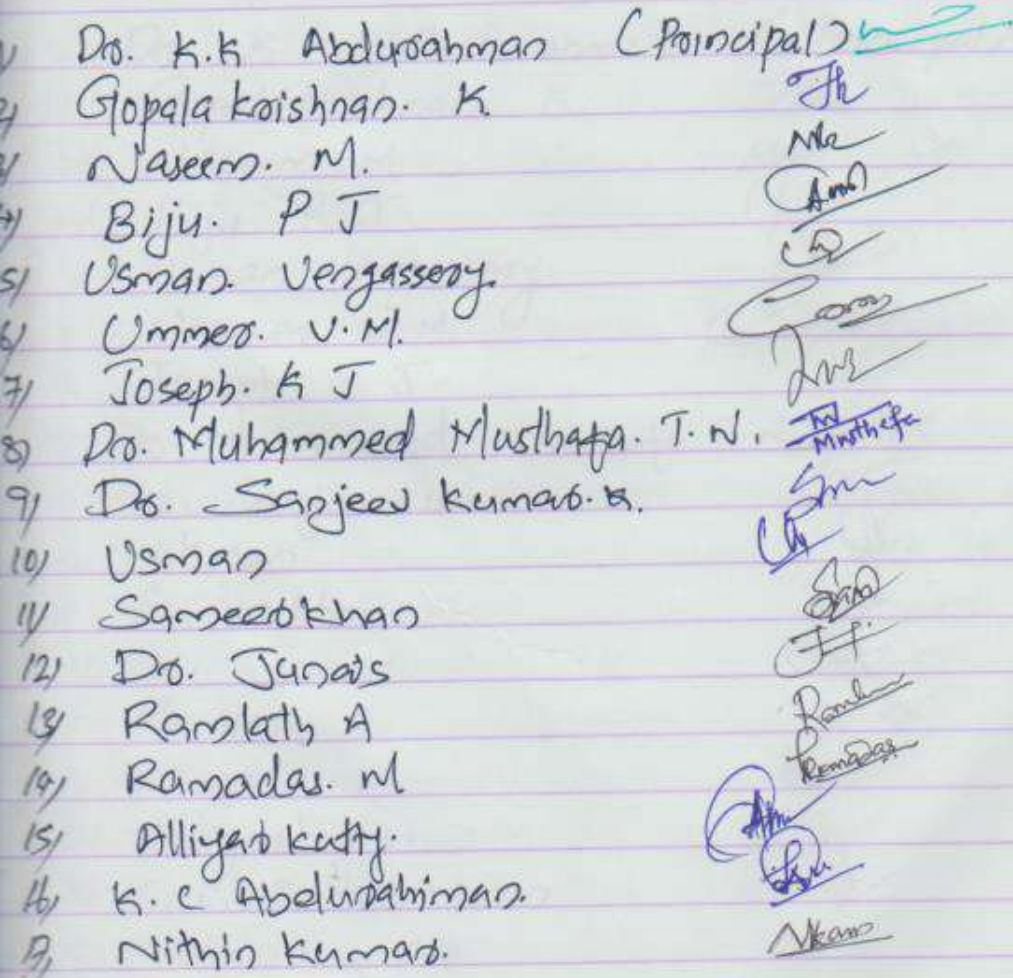 1) Dr. K.K Abdurahman (Principal)
2) Gopala krishnan. K
3) Naseem. M.
4) Biju. P J
5) Usman. Vengassery.
6) Ummer. V.M.
7) Joseph. K J
8) Dr. Muhammed Musthafa. T.N. Musthafa
9) Dr. Sanjeev Kumar. K.
10) Usman
11) Sameer khan
12) Dr. Junais
13) Ramlath A
14) Ramadas. M Ramadas
15) Alliyar kutty.
16) K. C Abdurahiman.
17) Nithin Kumar.